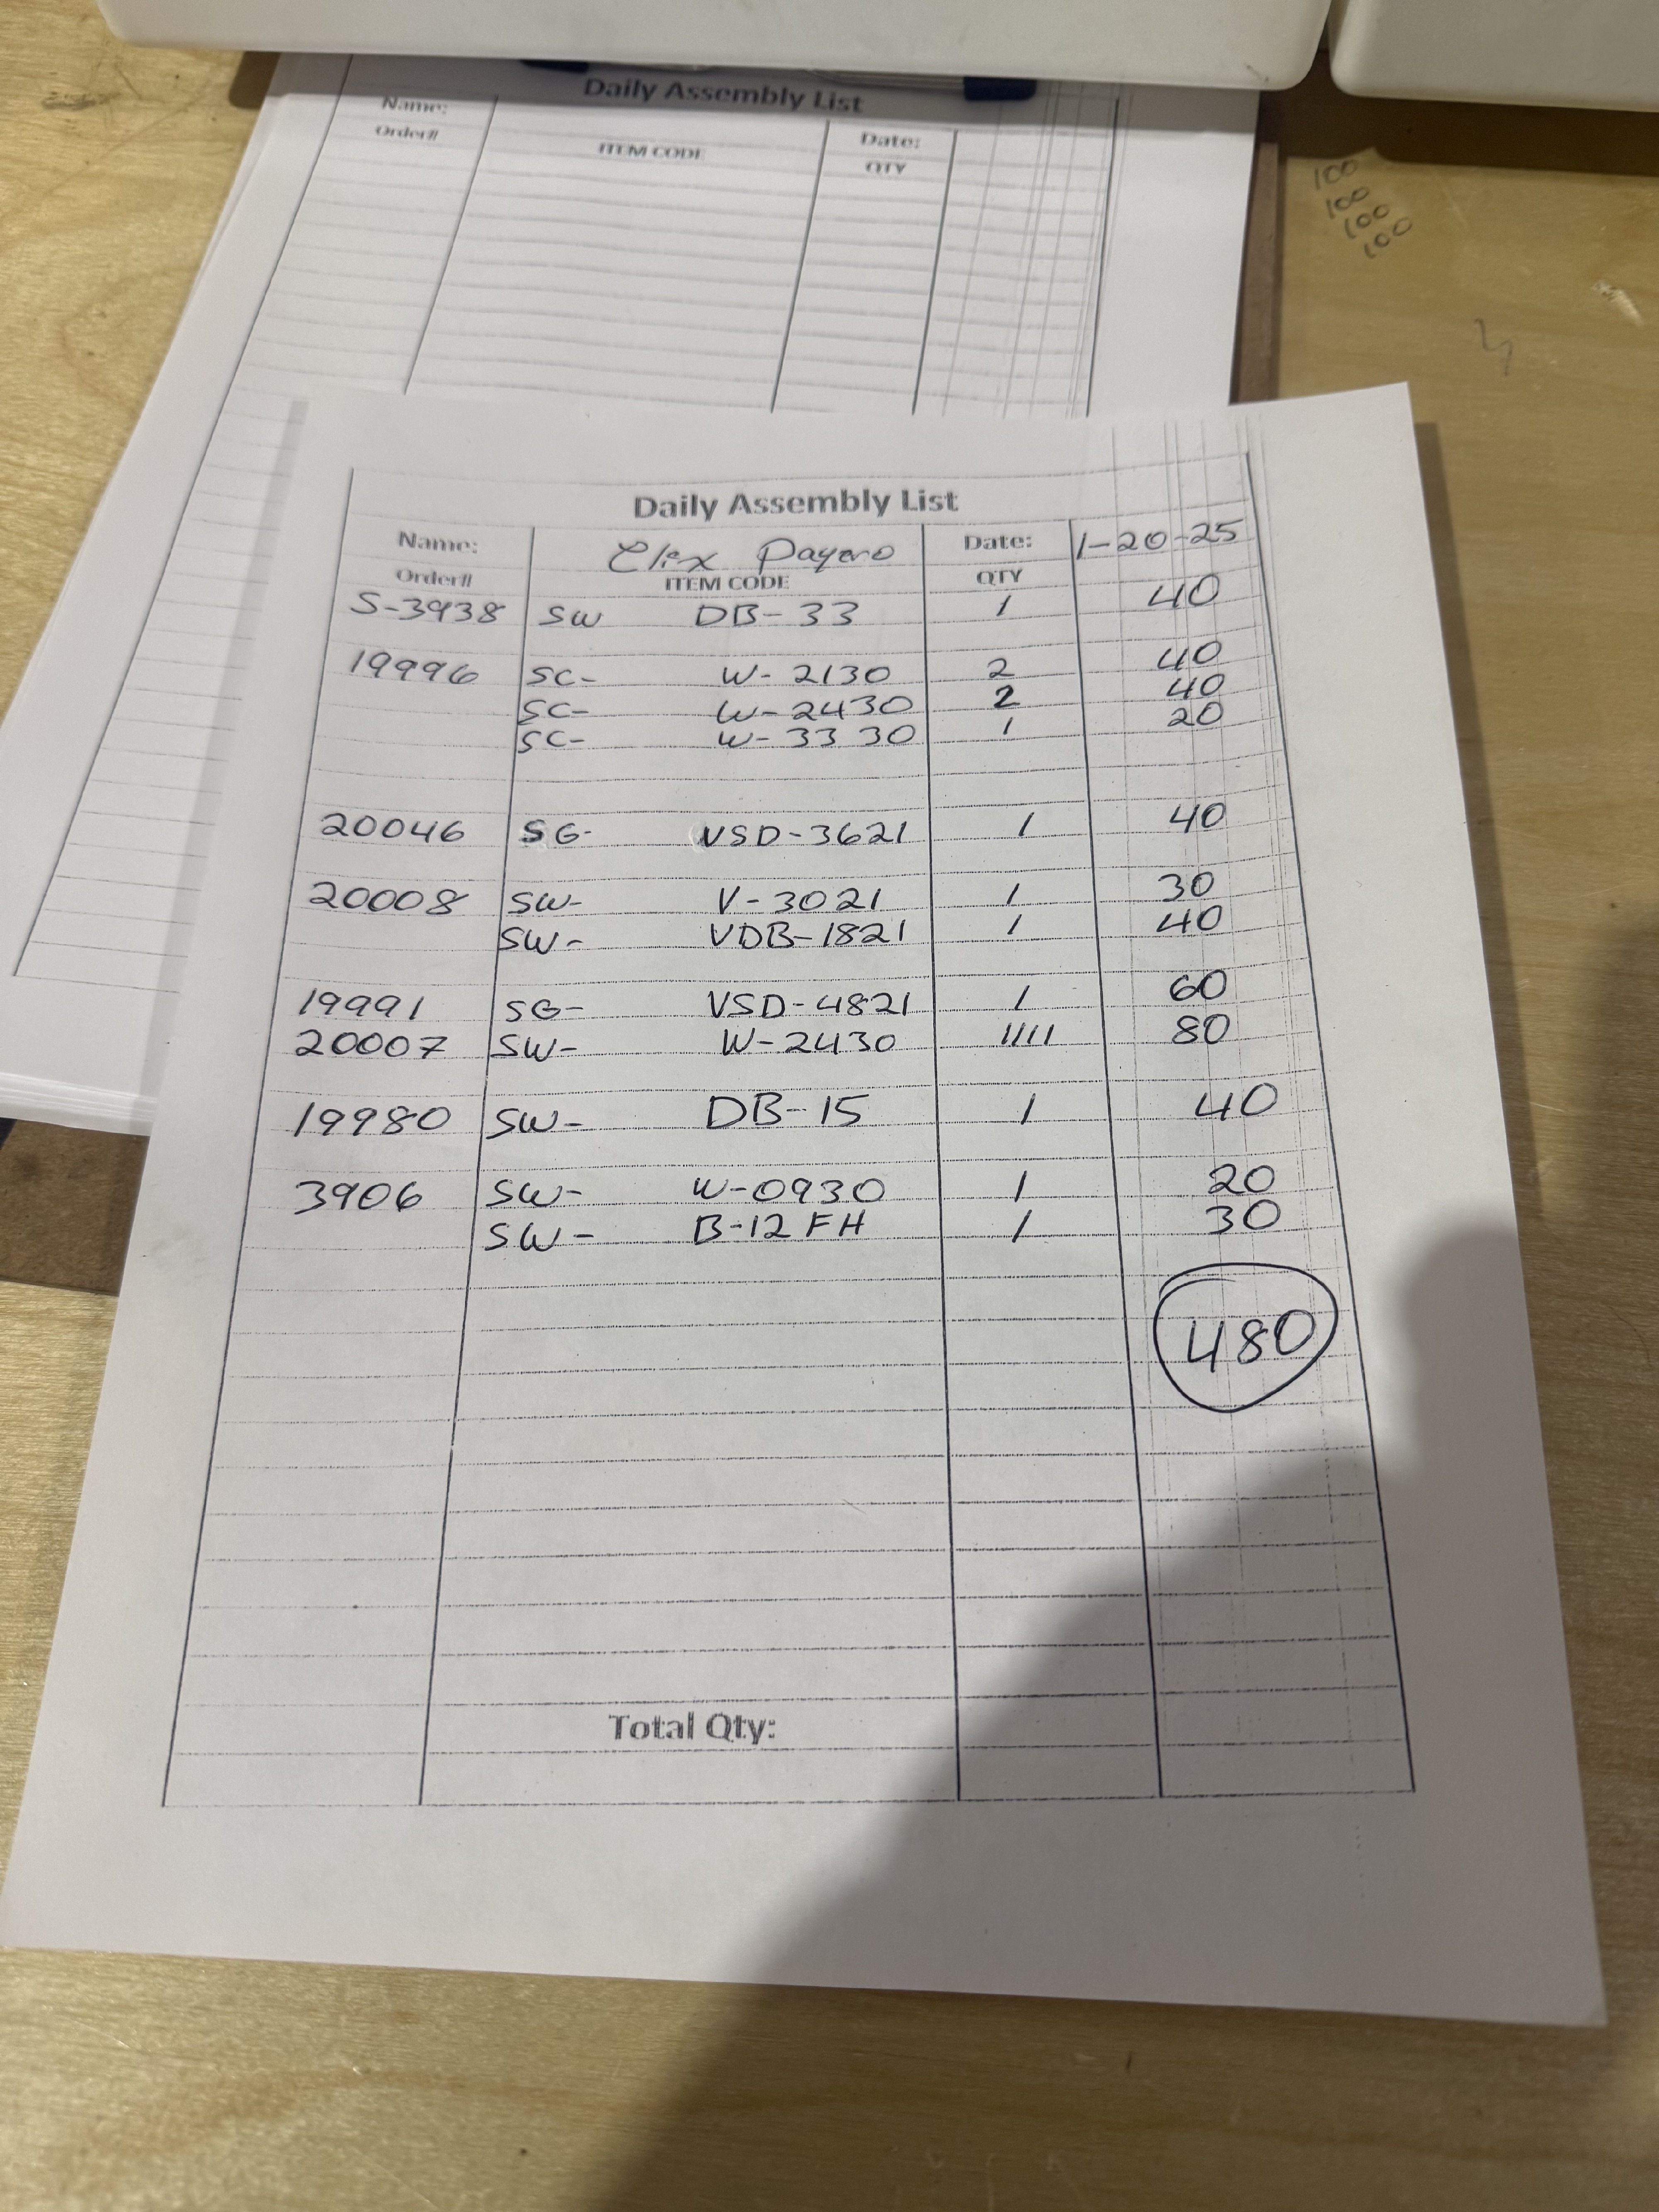 Daily Assembly List
Name: Date:
Order# ITEM CODE QTY
100
100
100
100
Daily Assembly List
Name: Elix Payero Date: 1-20-25
Order# ITEM CODE QTY
S-3938 SW DB-33 1 40
19996 SC- W-2130 2 40
SC- W-2430 2 40
SC- W-3330 1 20
20046 SG- VSD-3621 1 40
20008 SW- V-3021 1 30
SW- VDB-1821 1 40
19991 SG- VSD-4821 1 60
20007 SW- W-2430 1111 80
19980 SW- DB-15 1 40
3906 SW- W-0930 1 20
SW- B-12 FH 1 30
480
Total Qty: